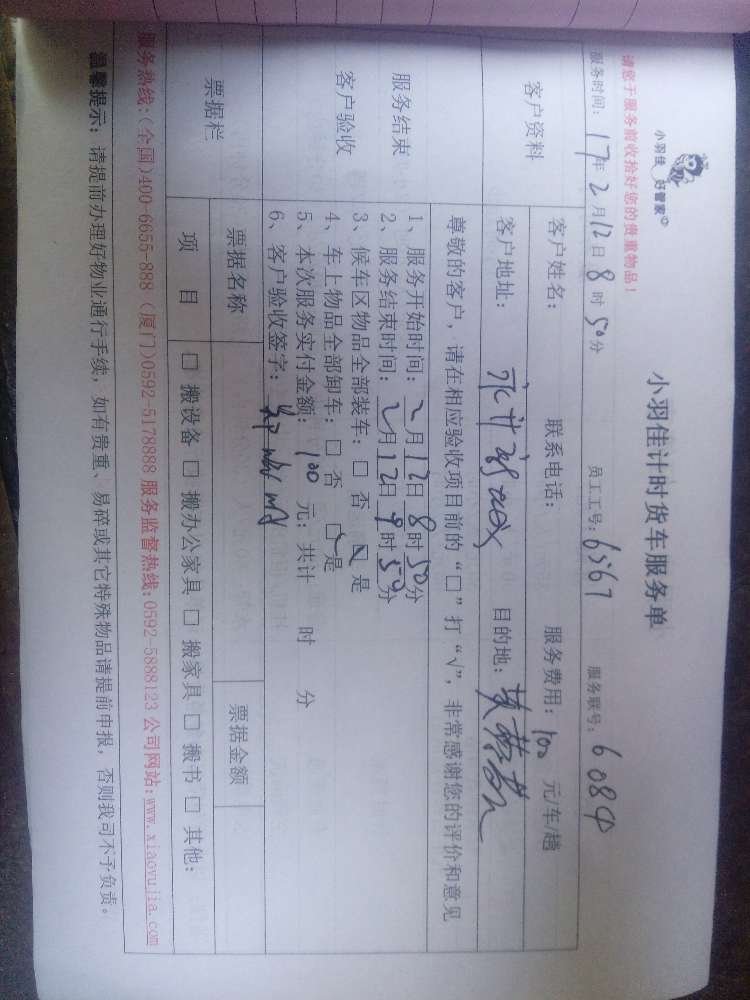 小羽佳 好管家
小羽佳计时货车服务单
请您于服务前收拾好您的贵重物品！
服务时间：17年2月12日8时50分 员工工号：6567 服务联号：6084
客户资料
客户姓名： 联系电话： 服务费用：100 元/车/趟
客户地址： 目的地：
尊敬的客户，请在相应验收项目前的“口”打“√”，非常感谢您的评价和意见
服务结束
客户验收
1、服务开始时间：2月12日8时50分
2、服务结束时间：2月12日9时50分
3、候车区物品全部装车：□ 否 ☑ 是
4、车上物品全部卸车：□ 否 ☑ 是
5、本次服务实付金额：100 元；共计 时 分
6、客户验收签字：
票据栏
票据名称 票据金额
项 目 □ 搬设备 □ 搬办公家具 □ 搬家具 □ 搬书 □ 其他：
服务热线：(全国)400-6655-888 (厦门)0592-5178888 服务监督热线：0592-5888123 公司网站：www.xiaoyujia.com
温馨提示：请提前办理好物业通行手续，如有贵重、易碎或其它特殊物品请提前申报，否则我司不予负责。